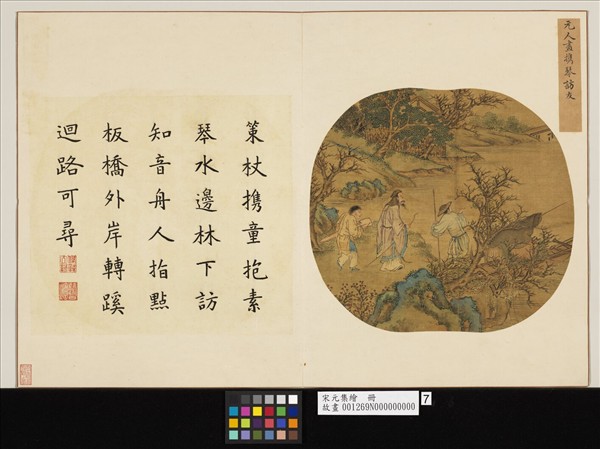 元人畫攜琴訪友
策杖携童抱素
琴水邊林下訪
知音舟人指點
板橋外岸轉蹊
迴路可尋
宋元集繪 冊
故畫 001269N000000000
7